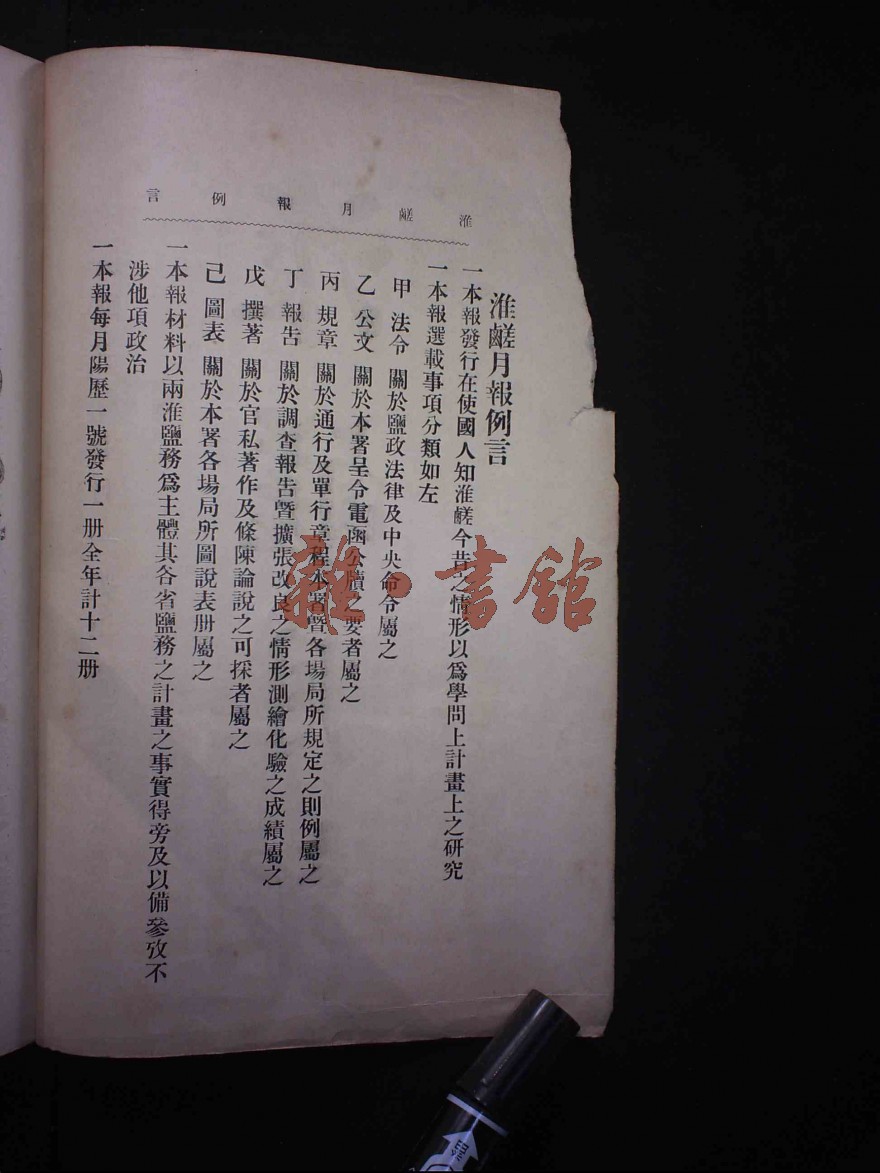 淮鹺月報例言
淮鹺月報例言
一本報發行在使國人知淮鹺今昔之情形以爲學問上計畫上之研究
一本報選載事項分類如左
甲 法令 關於鹽政法律及中央命令屬之
乙 公文 關於本署呈令電函公牘之要者屬之
丙 規章 關於通行及單行章程本署暨各場局所規定之則例屬之
丁 報告 關於調查報告暨擴張改良之情形測繪化驗之成績屬之
戊 撰著 關於官私著作及條陳論說之可採者屬之
己 圖表 關於本署各場局所圖說表册屬之
一本報材料以兩淮鹽務爲主體其各省鹽務之計畫之事實得旁及以備參攷不
涉他項政治
一本報每月陽歷一號發行一册全年計十二册
雜·書館